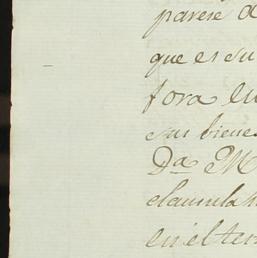 parese a
que es su
fora en
sus biene
Da. M
clausula
en el ter